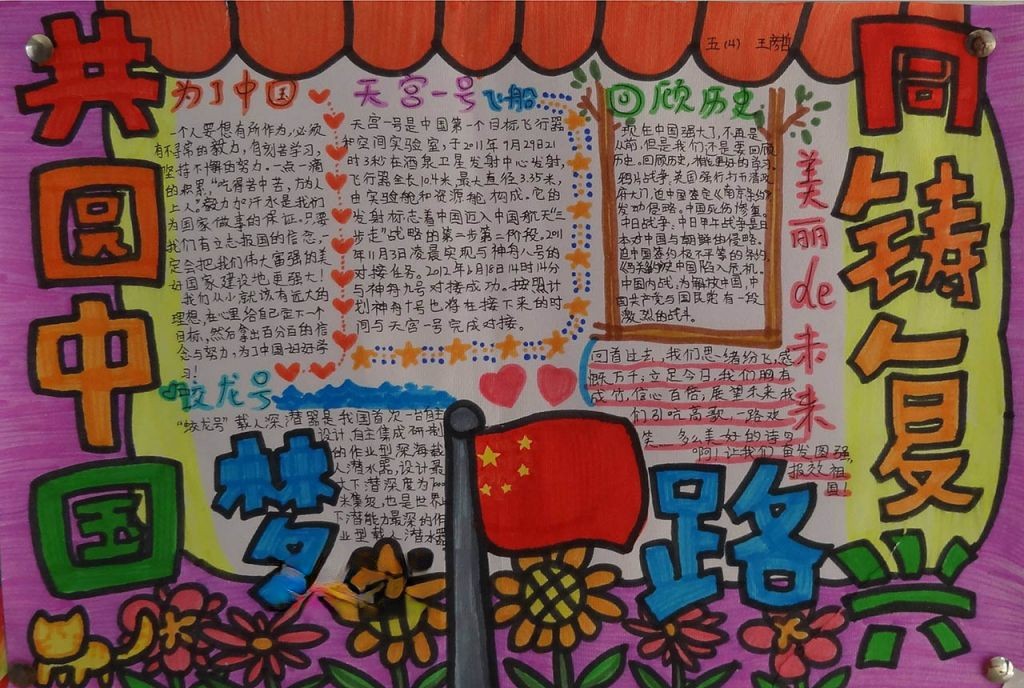 五(4) 王彦哲
共圆中国
梦
同铸复兴
路
为了中国
一个人要想有所作为,必须
有不寻常的毅力,有刻苦学习,
坚持不懈的努力。一点一滴
的积累,"吃得苦中苦,方为人
上人"毅力加汗水是我们
为国家做事的保证。只要
我们有立志报国的信念,
定会把我们伟大富强的美
好国家建设地更强大!
我们从小就该有远大的
理想,在心里给自己定下一个
目标,然后拿出百分百的信
念与努力,为了中国好好学
习!
天宫一号飞船
天宫一号是中国第一个目标飞行器
和空间实验室,于2011年9月29日21
时3秒在酒泉卫星发射中心发射,
飞行器全长10.4米,最大直径3.35米,
由实验舱和资源舱构成。它的
发射标志着中国迈入中国航天"三
步走"战略的第二步第二阶段。2011
年11月3日凌晨实现与神舟八号的
对接任务。2012年6月18日14时14分
与神舟九号对接成功。按照计
划神舟十号也将在接下来的时
间与天宫一号完成对接。
回顾历史
现在中国强大了,不再是
从前,但是我们还是要回顾
历史。回顾历史,才能更好的学习。
鸦片战争,英国强行打开清政
府大门,迫中国签定《南京条约》
发动侵略。中国死伤惨重。
中日战争:中日甲午战争是日
本对中国与朝鲜的侵略。
迫中国签约极不平等的条约
使中国陷入危机。
中国内战,为解放中国,中
国共产党与国民党有一段
激烈的战斗。
美丽de未来
回首过去,我们思绪纷飞,感
慨万千;立足今日,我们胸有
成竹,信心百倍;展望未来,我
们引吭高歌,一路欢
笑……多么美好的诗句
啊!让我们奋发图强,
报效祖
国!
蛟龙号
"蛟龙号"载人深潜器是我国首次一台自主
设计、自主集成研制
的作业型深海载
人潜水器,设计最
大下潜深度为7000
米集发,也是世界
下潜能力最深的作
业型载人潜水器